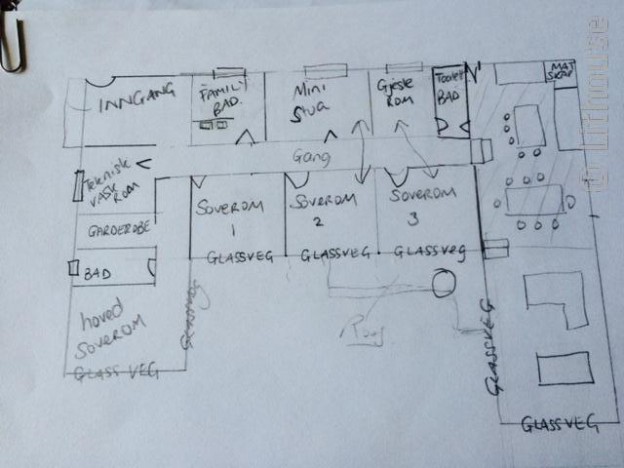 INNGANG
FAMILY
BAD.
MINI
STUA
Gjeste
ROM
Toalett
BAD
MAT
SKAP
Gang
Teknisk
VASK
ROM
GARDEROBE
BAD
hoved
SOVEROM
GLASSVEG
SOVEROM
1
GLASSVEG
SOVEROM
2
GLASSVEG
SOVEROM
3
GLASSVEG
GLASSVEG
GLASSVEG
© Lifthouse